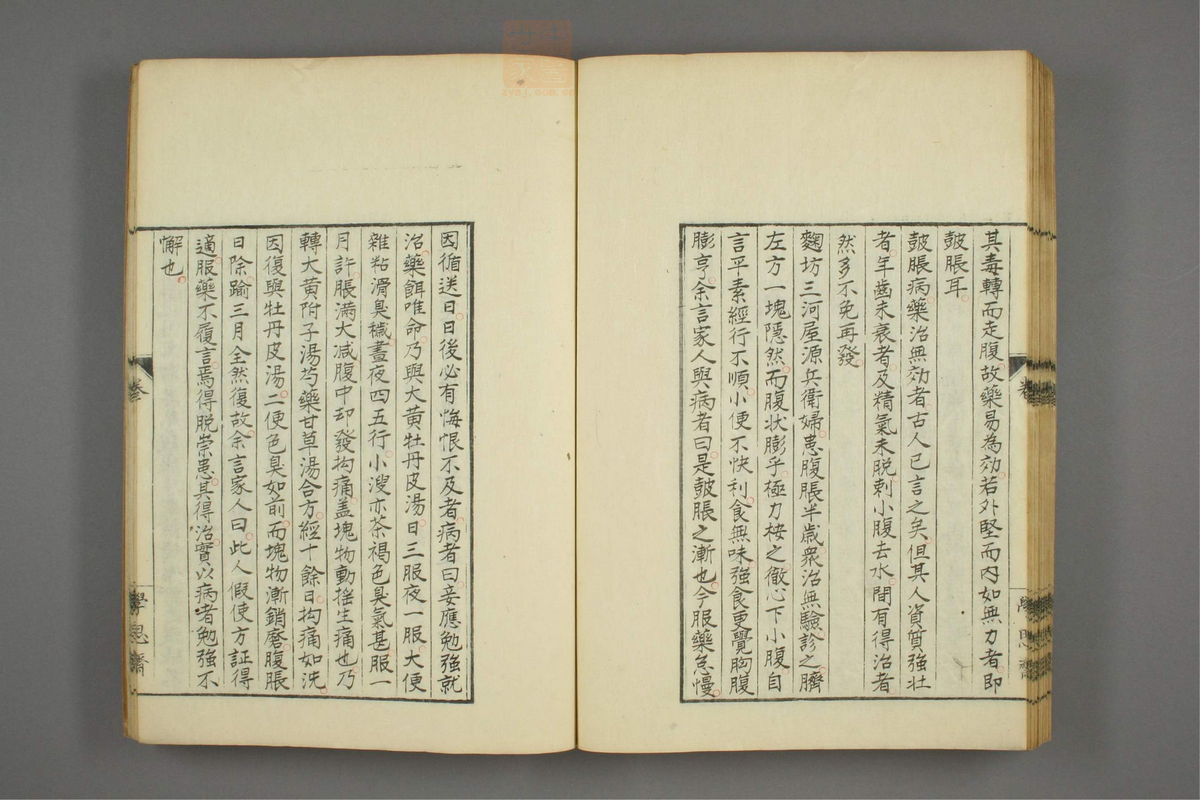 其毒轉而走腹故藥易為効若外堅而內如無力者即
皷脹耳
皷脹病藥治無効者古人已言之矣但其人資質強壮
者年齒未衰者及精氣未脫刺小腹去水間有得治者
然多不免再發
麴坊三河屋源兵衛婦患腹脹半歲衆治無驗診之臍
左方一塊隱然而腹状膨乎極力桉之徹心下小腹自
言平素經行不順小便不快利食無味強食更覺胸腹
膨亨余言家人與病者曰是皷脹之漸也今服藥怠慢
因循送日日後必有悔恨不及者病者曰妾應勉強就
治藥餌唯命乃與大黄牡丹皮湯日三服夜一服大便
雜粘滑臭穢晝夜四五行小溲亦茶褐色臭氣甚服一
月許脹滿大減腹中却發拘痛盖塊物動揺生痛也乃
轉大黄附子湯芍藥甘草湯合方經十餘日拘痛如洗
因復與牡丹皮湯二便色臭如前而塊物漸銷磨腹脹
日除踰三月全然復故余言家人曰此人假使方証得
適服藥不履言焉得脫祟患其得治實以病者勉強不
懈也
卷
學思齋